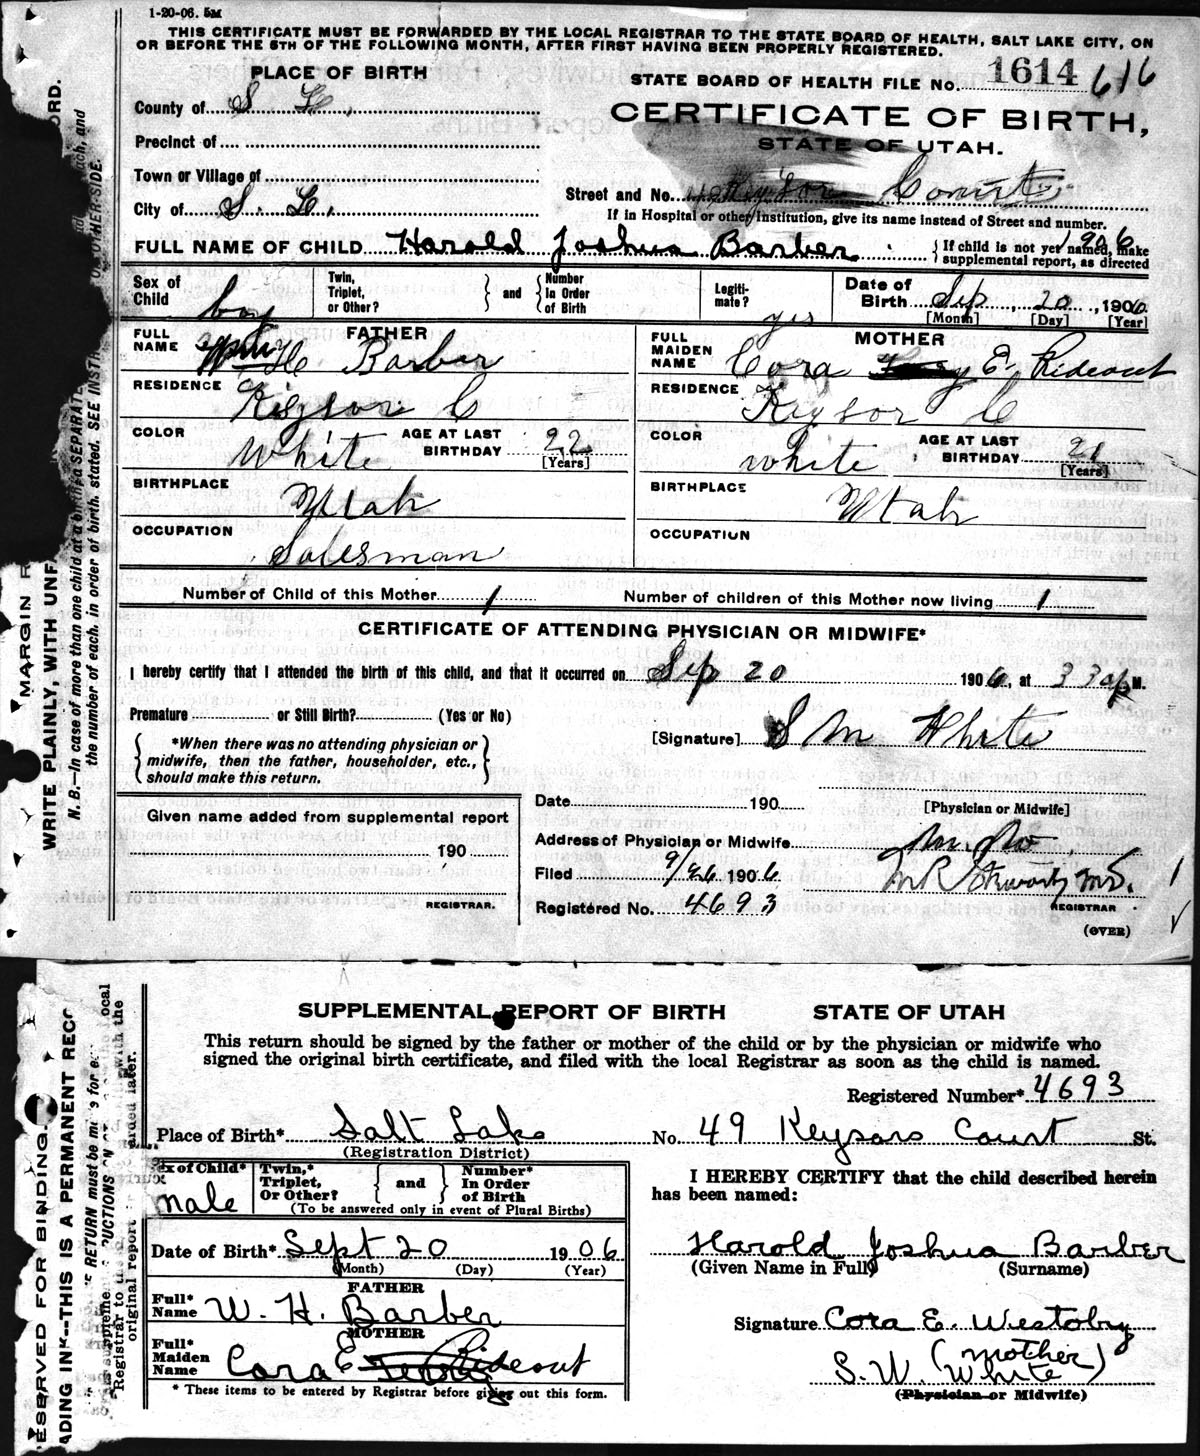 1-20-06. 5M
THIS CERTIFICATE MUST BE FORWARDED BY THE LOCAL REGISTRAR TO THE STATE BOARD OF HEALTH, SALT LAKE CITY, ON
OR BEFORE THE 5TH OF THE FOLLOWING MONTH, AFTER FIRST HAVING BEEN PROPERLY REGISTERED.
PLACE OF BIRTH
STATE BOARD OF HEALTH FILE No. 1614 616
County of S L,
CERTIFICATE OF BIRTH,
STATE OF UTAH.
Precinct of
Town or Village of
Street and No. Keysor Court
City of S. L.
If in Hospital or other Institution, give its name instead of Street and number.
FULL NAME OF CHILD Harold Joshua Barber 1906
{If child is not yet named, make
supplemental report, as directed
Sex of Child boy
Twin, Triplet, or Other? } and { Number In Order of Birth
Legiti-mate? yes
Date of Birth Sep, 20, 1906
[Month] [Day] [Year]
FATHER
FULL NAME H Barber
MOTHER
FULL MAIDEN NAME Cora E. Rideout
RESIDENCE Keysor C
RESIDENCE Keysor C
COLOR White AGE AT LAST BIRTHDAY 22 [Years]
COLOR white AGE AT LAST BIRTHDAY 21 [Years]
BIRTHPLACE Utah
BIRTHPLACE Utah
OCCUPATION Salesman
OCCUPATION
Number of Child of this Mother 1 Number of children of this Mother now living 1
CERTIFICATE OF ATTENDING PHYSICIAN OR MIDWIFE*
I hereby certify that I attended the birth of this child, and that it occurred on Sep 20 1906, at 3 30 p M.
Premature or Still Birth? (Yes or No)
[Signature] S M White
{ *When there was no attending physician or
midwife, then the father, householder, etc.,
should make this return. }
Date 190
[Physician or Midwife]
Given name added from supplemental report
190
REGISTRAR.
Address of Physician or Midwife
Filed 9/26 1906
Registered No. 4693
REGISTRAR
(OVER)
MARGIN R
WRITE PLAINLY, WITH UNF
ORD.
N. B.—In case of more than one child at a birth, a SEPARAT
ach, and
the number of each, in order of birth, stated. SEE INST
OTHER SIDE.
SUPPLEMENTAL REPORT OF BIRTH STATE OF UTAH
This return should be signed by the father or mother of the child or by the physician or midwife who
signed the original birth certificate, and filed with the local Registrar as soon as the child is named.
Registered Number* 4693
Place of Birth* Salt Lake No. 49 Keysors Court St.
(Registration District)
Sex of Child* male
Twin,* Triplet, Or Other? { and } Number* In Order of Birth
(To be answered only in event of Plural Births)
I HEREBY CERTIFY that the child described herein
has been named:
Date of Birth* Sept 20 1906
(Month) (Day) (Year)
Harold Joshua Barber
(Given Name in Full) (Surname)
FATHER
Full* Name W. H. Barber
MOTHER
Full* Maiden Name Cora E Rideout
Signature Cora E. Westoby
(mother)
S. W. White
(Physician or Midwife)
* These items to be entered by Registrar before giving out this form.
ESERVED FOR BINDING
ADING INK--THIS IS A PERMANENT REC
RETURN must be m
Registrar to the
original report